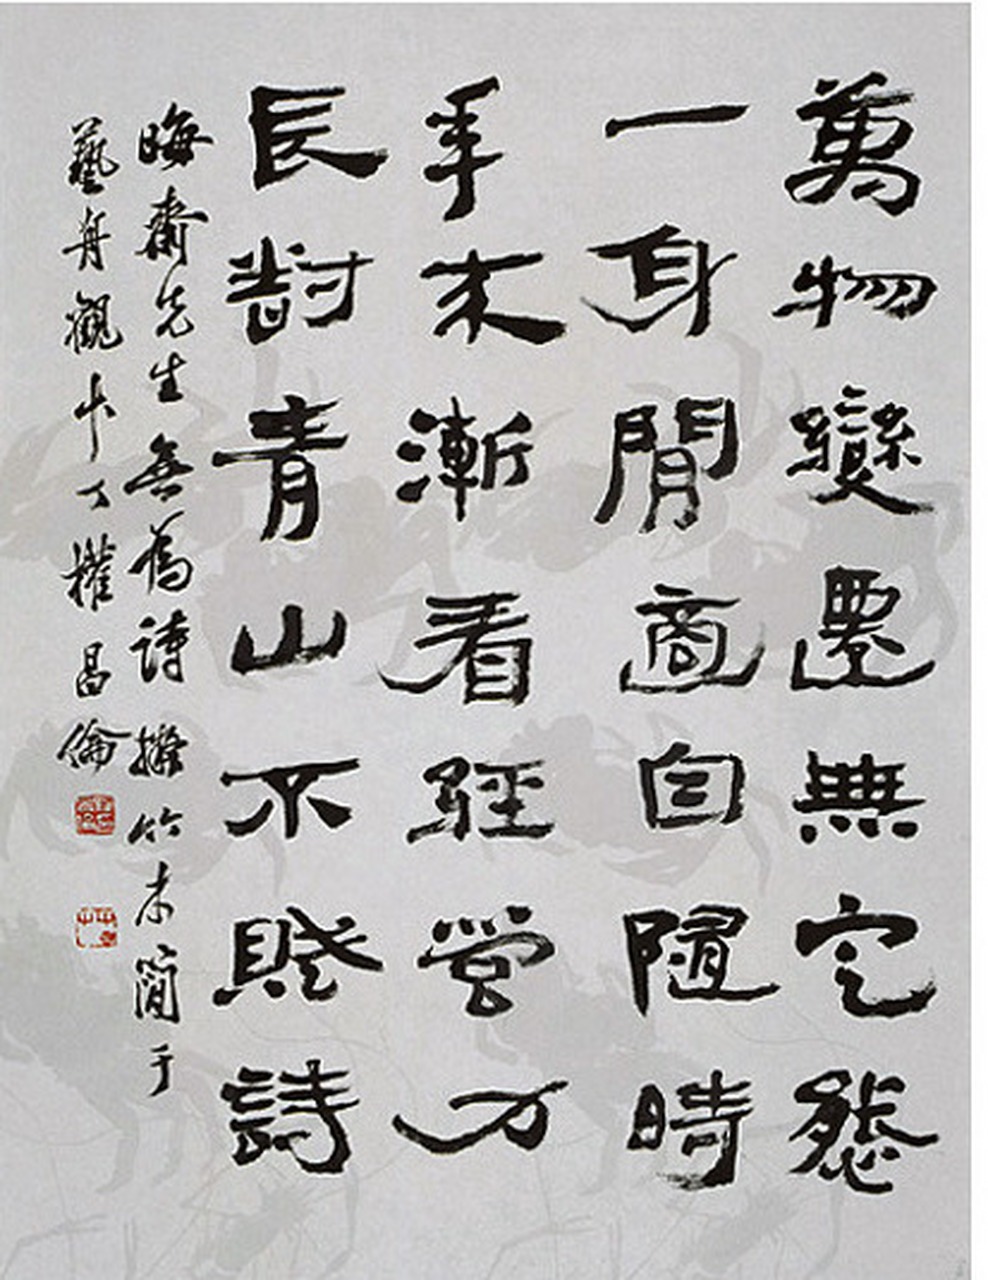 萬物變遷無定態
一身閒適自隨時
年來漸看經營力
長對青山不賦詩
晦齋先生無爲詩擬竹木簡于
藝舟觀艸丁權昌倫